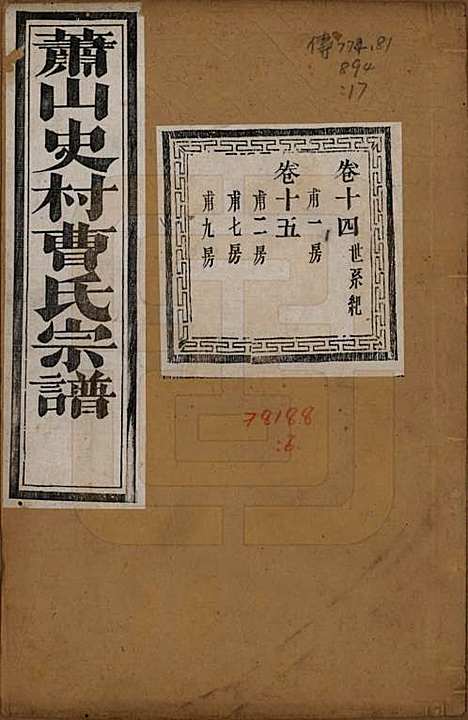 蕭山史村曹氏宗譜
卷十四 世系紀
甫一房
卷十五
甫二房
甫七房
甫九房
傳 774.81
894
:17